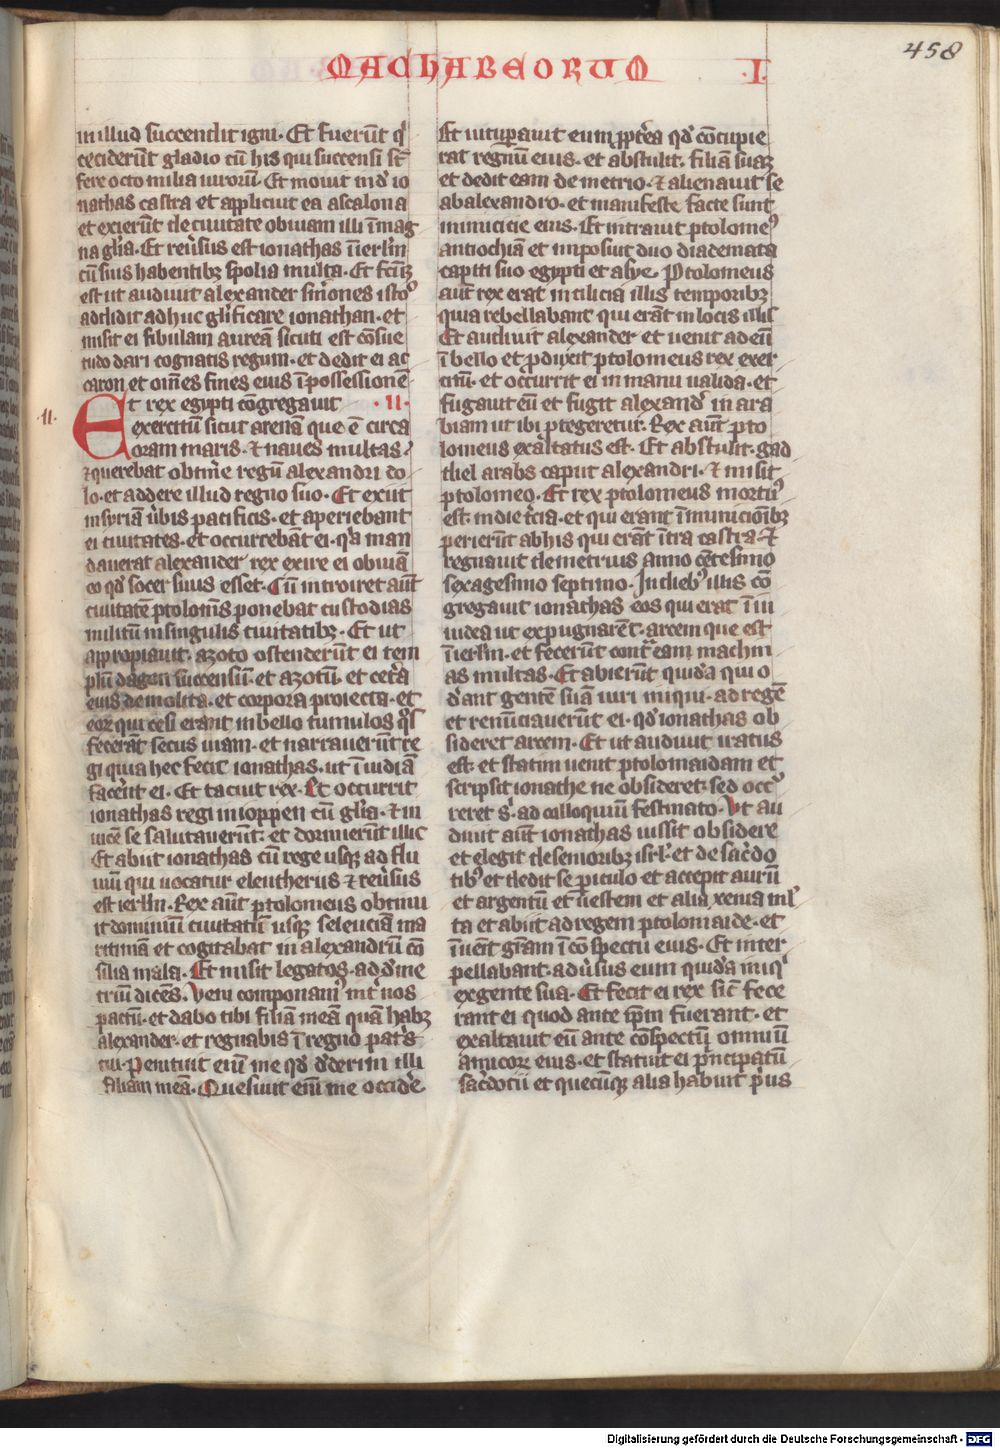 458
MACHABEORUM .I.
in illud succendit igni. Et fuerūt qͥ
ceciderūt gladio cū his qui succensi sͭ
fere octo milia uirorū. Et mouit īdͤ io
nathas castra et applicuit ea ascalona
et exierūt de ciuitate obuiam illi ī mag
na gl̄ia. Et reūsus est ionathas ī ierlm̄
cū suis habentibꝫ spolia multa. Et fc̄ꝫ
est ut audiuit alexander sm̄ones istoꝰ
addidit adhuc gl̄ificare ionathan. et
misit ei fibulam aureā sicuti est cōsue
tudo dari cognatis regum. et dedit ei ac
caron et om̄es fines eius ī possessionē
.II.
Et rex egypti cōgregauit .II.
exercitū sicut arenā que ē circa
oram maris. ⁊ naues multas
⁊ querebat obtin̄e regnū alexandri do
lo. et addere illud regno suo. Et exiit
in syriā ūbis pacificis. et aperiebant
ei ciuitates. et occurrebāt ei. qͥa man
dauerat alexander rex exire ei obuiā
eo qd̄ socer suus esset. Cū introiret aūt
ciuitatē ptolom̄s ponebat custodias
militū in singulis ciuitatibꝫ. Et ut
appropiauit. azoto ostenderūt ei tem
plū dagon succensū. et azotū. et cet̄a
eius demolita. et corpora proiecta. et
eoꝝ qui cesi erant in bello tumulos qͦs
fecerāt secus uiam. et narrauerūt re
gi quia hec fecit ionathas. ut ī uidiā
facēnt ei. Et tacuit rex. Et occurrit
ionathas regi in ioppen cū gl̄ia. ⁊ in
uicē se salutauerūt. et dormierūt illic
Et abiit ionathas cū rege usqꝫ ad flu
uiū qui uocatur eleutherus ⁊ reūsus
est ierlm̄. Rex aūt ptolomeus obtinu
it dominiū ciuitatū usqꝫ seleuciā ma
ritimā et cogitabat in alexandrū cō
silia mala. Et misit legatos. ad dͤme
triū dicēs. Veni componamꝰ int̄ nos
pactū. et dabo tibi filiā meā quā habꝫ
alexander. et regnabis ī regno pat̄s
tui. Penituit eim̄ me qd̄ dͤderim illi
filiam meā. Quesiuit eim̄ me occidͤe
Et uitup̄auit eum pp̄t̄ea qd̄ cōcupie
rat regnū eius. et abstulit. filiā suaꝫ
et dedit eam demetrio. ⁊ alienauit se
ab alexandro. et manifeste facte sunt
inimicicie eius. Et intrauit ptolomeꝰ
antiochiā et imposuit duo diademata
capiti suo egypti et asye. Ptolomeus
aūt rex erat in cilicia illis temporibꝫ
quia rebellabant qui erāt in locis illis
Et audiuit alexander et uenit ad eū
ī bello et produxit ptolomeus rex exer
citū. et occurrit ei in manu ualida. et
fugauit eū et fugit alexandͤ in ara
biam ut ibi ꝓtegeretur. Rex aūt pto
lomeus exaltatus est. Et abstulit. gad
diel arabs caput alexandri. ⁊ misit
ptolomeo. Et rex ptolomeus mortuꝰ
est. in die t̄cia. et qui erant ī municiōibꝫ
perierūt ab his qui erāt ītra castra. ⁊
regnauit demetrius anno cētesimo
sexagesimo septimo. In diebꝰ illis cō
gregauit ionathas eos qui erāt ī iu
iudea ut expugnarēt. arcem que est
ī ierlm̄. et fecerūt cont̄ eam machin
as multas. Et abierūt quidā qui o
dͤant gentē suā uiri iniqui. ad regē
et renūciauerūt ei. qd̄ ionathas ob
sideret arcem. Et ut audiuit iratus
est. et statim uenit ptolomaidam et
scripsit ionathe ne obsideret. sed occꝰ
reret s͛. ad colloquiū festinato. Vt au
diuit aūt ionathas iussit obsidere
et elegit de senioribꝫ isrl̄. et de sacͣdo
tibꝰ et dedit se ꝑiculo et accepit aurū
et argentū et ūestem et alia xenia ml̄
ta et abiit ad regem ptolomaide. et
īuēit gr̄am ī cōspectu eius. Et inter
pellabant. adūsus eum quidā iniqͥ
ex gente sua. Et fecit ei rex sic̄ fece
rant ei quod ante ip̄m fuerant. et
exaltauit eū ante cōspectū omniū
amicoꝝ eius. et statuit ei pͥncipatū
sacͣdotii et quecūqꝫ alia habuit pͥus
Digitalisierung gefördert durch die Deutsche Forschungsgemeinschaft - DFG